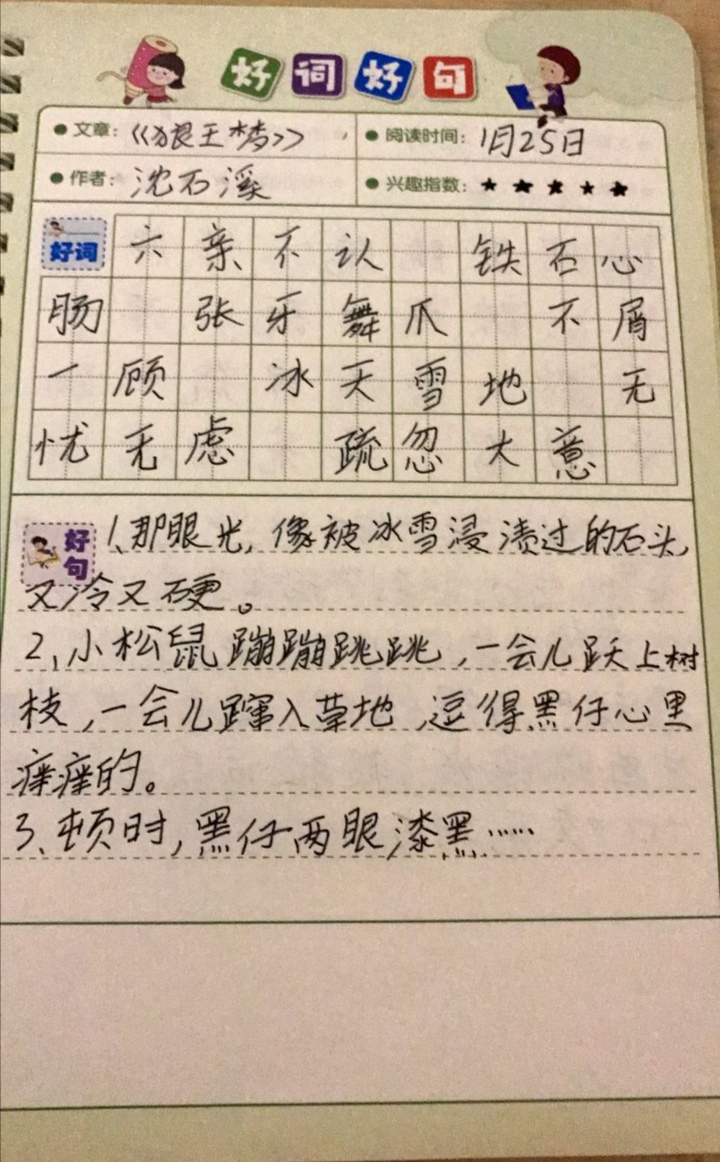 好词好句
文章：《狼王梦》 阅读时间：1月25日
作者：沈石溪 兴趣指数：★★★★★
好词 六亲不认 铁石心
肠 张牙舞爪 不屑
一顾 冰天雪地 无
忧无虑 疏忽大意
好句 1、那眼光，像被冰雪浸渍过的石头，
又冷又硬。
2、小松鼠蹦蹦跳跳，一会儿跃上树
枝，一会儿蹿入草地，逗得黑仔心里
痒痒的。
3、顿时，黑仔两眼漆黑……